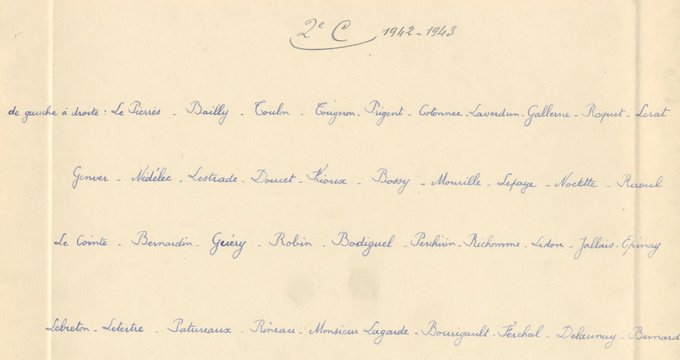 2e C 1942-1943
de gauche à droite : Le Pierrès - Bailly - Toulon - Tougeron - Pigent - Cotonnec - Laverdun - Gallerne - Roquet - Lerat
Genver - Nédélec - Lestrade - Doucet - Rioux - Bossy - Mourille - Lefaye - Noblette - Raoul
Le Cointe - Bernardin - Guéry - Robin - Bodiguel - Perchirin - Richomme - Lidou - Jallais - Epinay
Lebreton - Letertre - Patureaux - Rineau - Monsieur Lagarde - Bourigault - Ferchal - Delaunay - Bernard